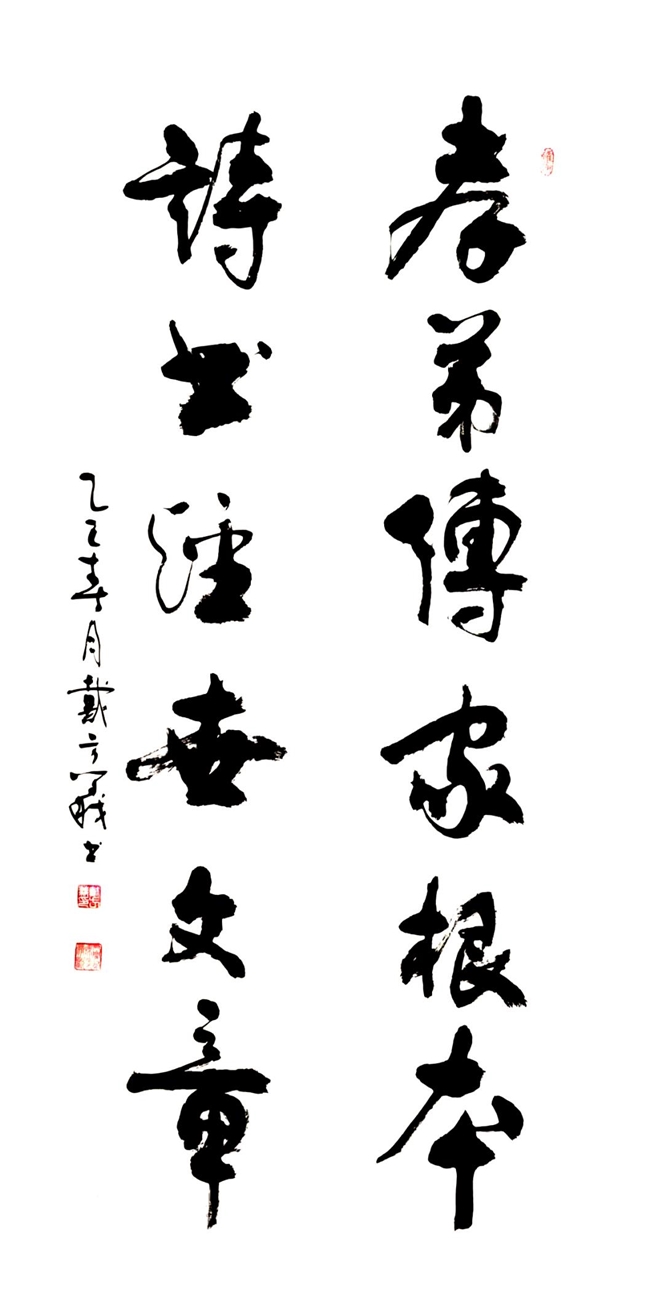 孝弟傳家根本
詩書經世文章
乙巳春月戴方义書